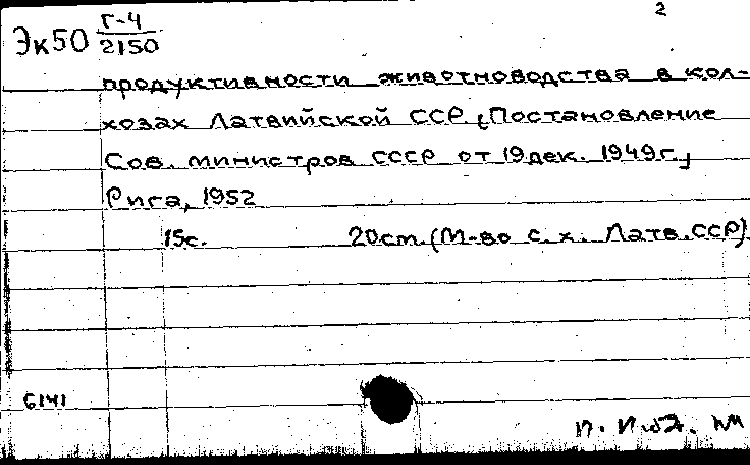 2
Эк50 Г-4/2150
продуктивности животноводства в кол-
хозах Латвийской ССР. (Постановление
Сов. министров СССР от 19 дек. 1949г.)
Рига, 1952
15с. 20см. (М-во с. х. Латв. ССР)
6141